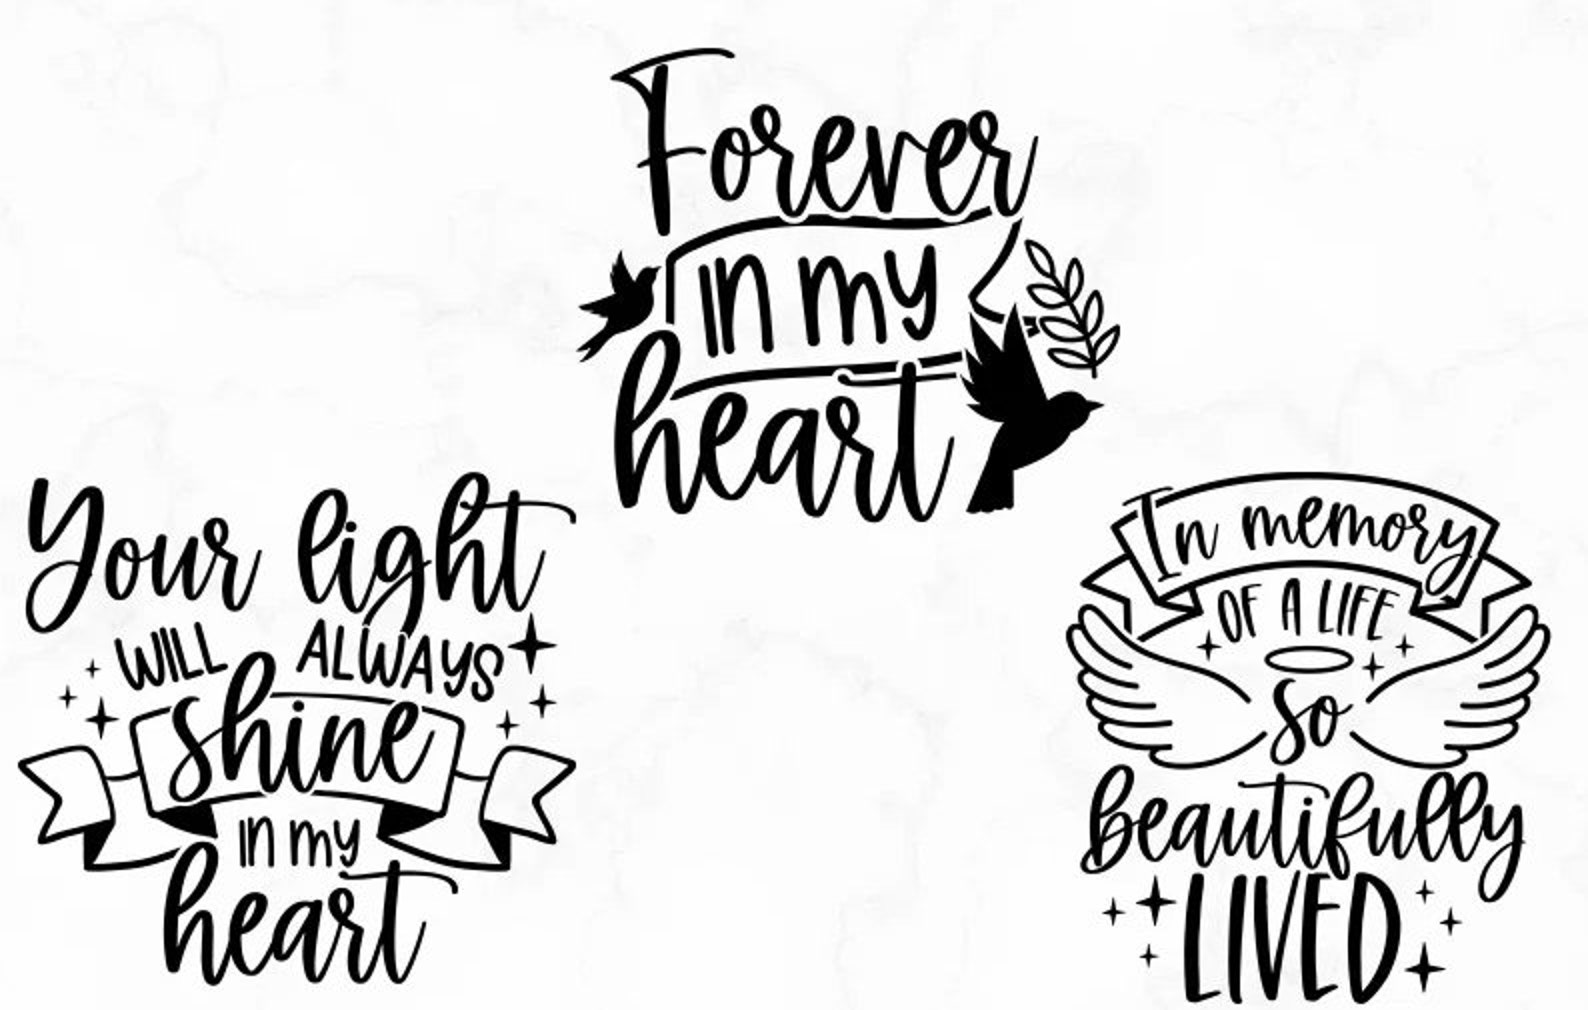 Forever
in my
heart
Your light
WILL ALWAYS
shine
in my
heart
In memory
OF A LIFE
so
beautifully
LIVED